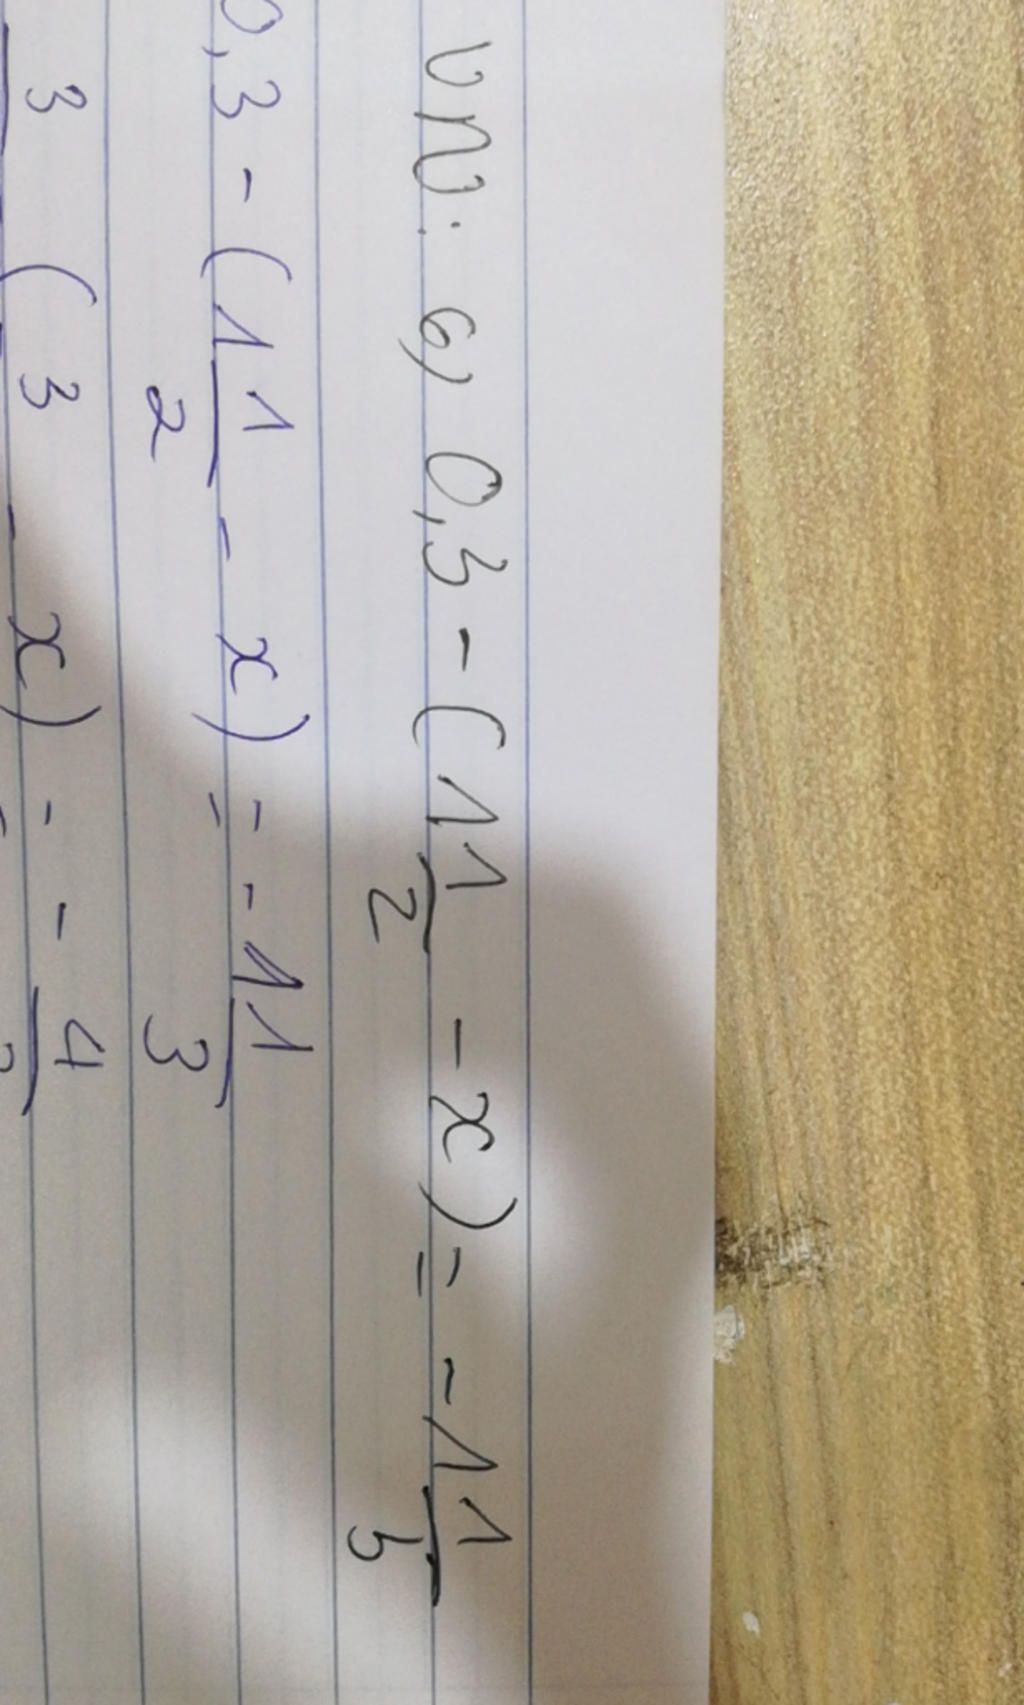 VN: 6) 0,3 - (1 1/2 - x) = - 1 1/3
0,3 - (1 1/2 - x) = - 1 1/3
3 (3 - x) = - 4